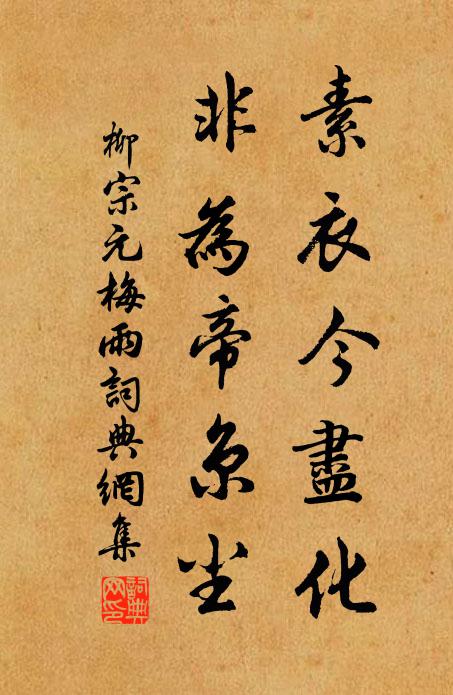 素衣今盡化
非為帝京塵
柳宗元梅雨詞典網集
詞典網印